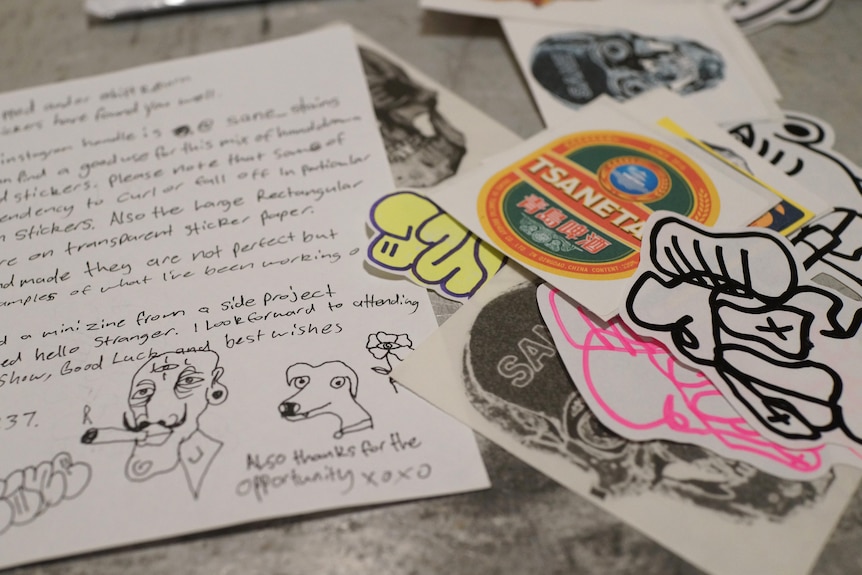 pped under shift Return
ickers have found you well.
instagram handle is @ sane_stains
n find a good use for this mix of handdrawn
d stickers. Please note that some of
endency to curl or fall off In particular
n stickers. Also the Large Rectangular
re on transparent sticker paper.
nd made they are not perfect but
amples of what I've been working o
d a minizine from a side project
ed hello Stranger. I look forward to attending
show, Good Luck and best wishes
37.
R
Also thanks for the
opportunity xoxo
TSANETA
青島啤酒
CO., LTD IN QINGDAO, CHINA CONTENT
SAN